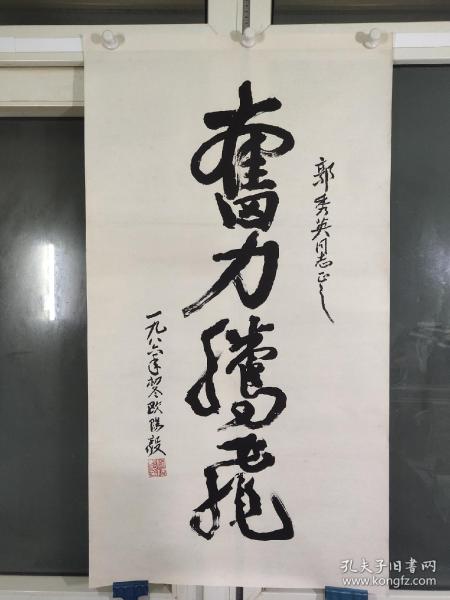 郭秀英同志正之
奮力騰飛
一九八六年初冬欧阳毅
孔夫子旧书网
www.kongfz.com